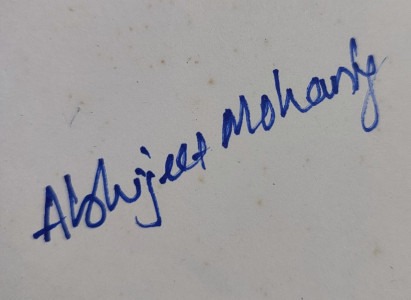 Abhijeet Mohanty